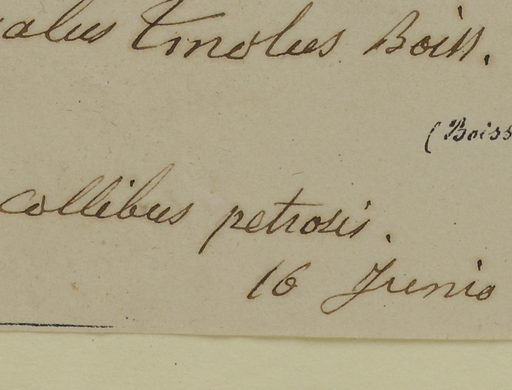 alus Tmolus Boiss.
(Boiss
collibus petrosis.
16 Junio